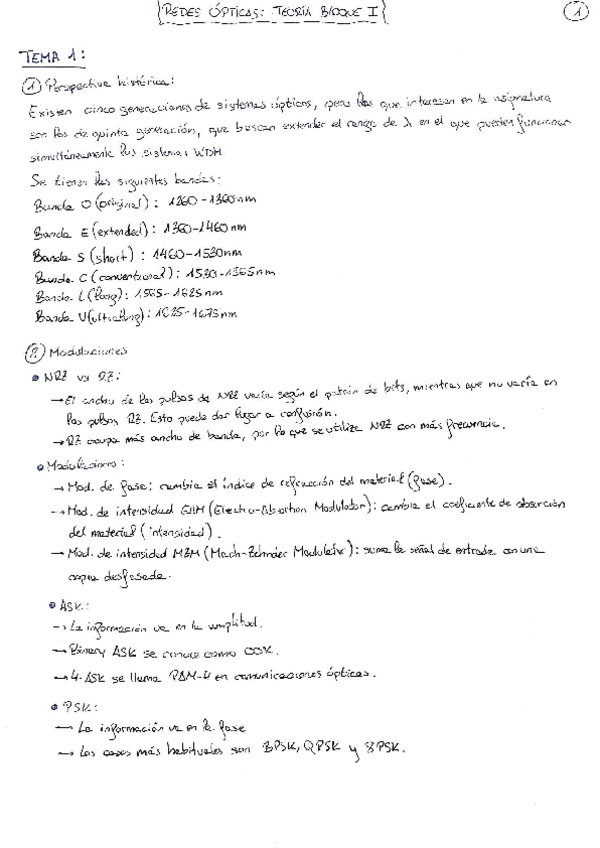 REDES ÓPTICAS: TEORÍA BLOQUE I
1
TEMA 1:
1 Perspectiva histórica:
Existen cinco generaciones de sistemas ópticos, pero las que interesan en la asignatura
son las de quinta generación, que buscan extender el rango de λ en el que pueden funcionar
simultáneamente los sistemas WDM.
Se tienen las siguientes bandas:
Banda O (original): 1260-1360nm
Banda E (extended): 1360-1460nm
Banda S (short): 1460-1530nm
Banda C (conventional): 1530-1565nm
Banda L (long): 1565-1625nm
Banda U (ultralong): 1625-1675nm
2 Modulaciones
• NRZ vs RZ:
→ El ancho de los pulsos de NRZ varía según el patrón de bits, mientras que no varía en
los pulsos RZ. Esto puede dar lugar a confusión.
→ RZ ocupa más ancho de banda, por lo que se utiliza NRZ con más frecuencia.
• Moduladores:
→ Mod. de fase: cambia el índice de refracción del material (fase).
→ Mod. de intensidad EAM (Electro-Absortion Modulator): cambia el coeficiente de absorción
del material (intensidad).
→ Mod. de intensidad MZM (Mach-Zehnder Modulator): suma la señal de entrada con una
copia desfasada.
• ASK:
→ La información va en la amplitud.
→ Binary ASK se conoce como OOK.
→ 4-ASK se llama PAM-4 en comunicaciones ópticas.
• PSK:
→ La información va en la fase
→ Los casos más habituales son BPSK, QPSK y 8PSK.